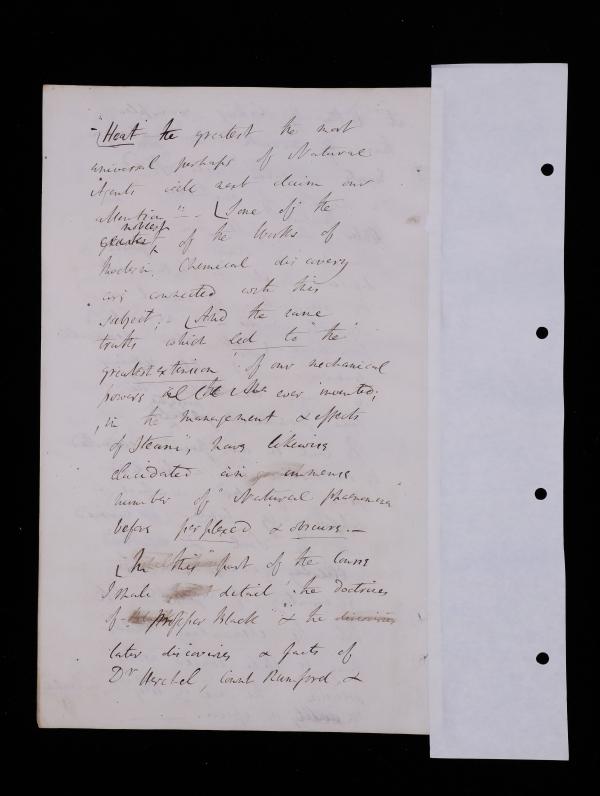 "Heat the greatest the most
universal perhaps of Natural
Agents will next claim our
attention". - Some of the
noblest
greatest of the Works of
Modern Chemical discovery
are connected with this
subject; And the same
truths which led to "the"
greatest extension of our mechanical
powers ever invented;
in the management & effects
of Steam, have likewise
elucidated an immense
number of "Natural phaenomena"
before perplexed & obscure. -
In this part of the Course
I shall detail the doctrines
of Professor Black & the discoveries
later discoveries & facts of
Dr Herschel, Count Rumford, &